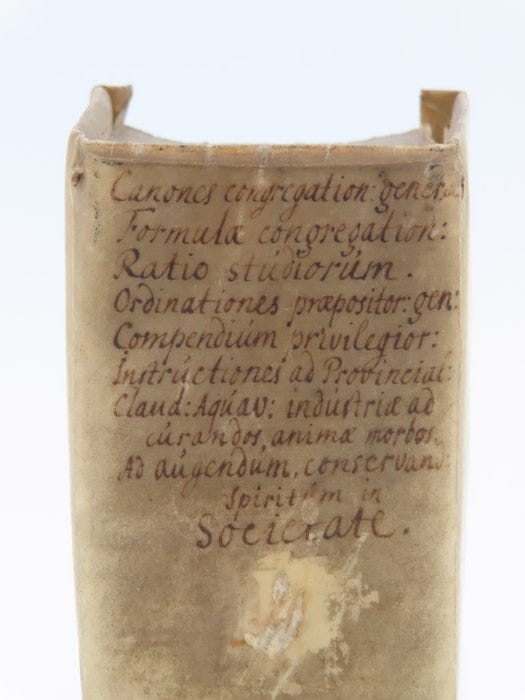 Canones congregation: generaliu
Formulæ congregation:
Ratio studiorum.
Ordinationes præpositor: gen:
Compendium privilegior:
Instructiones ad Provincial:
Claud: Aquav: industriæ ad
curandos animæ morbos.
Ad augendum, conservand:
Spiritum in
Societate.